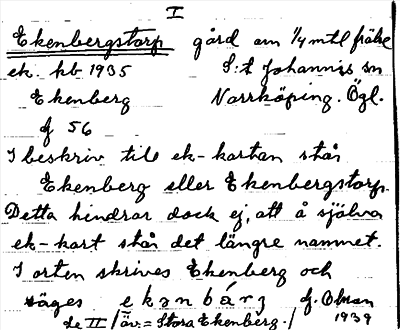 I
Ekenbergstorp gård om 1/4 mtl frälse
ek. kb 1935 S:t Johannis sn
Ekenberg Norrköping. Ögl.
f 56
I beskriv till ek-kartan står
Ekenberg eller Ekenbergstorp.
Detta hindrar dock ej, att å själva
ek-kart står det längre namnet.
I orten skrives Ekenberg och
säges ekanbárj
se II / äv. = Stora Ekenberg. / 1939